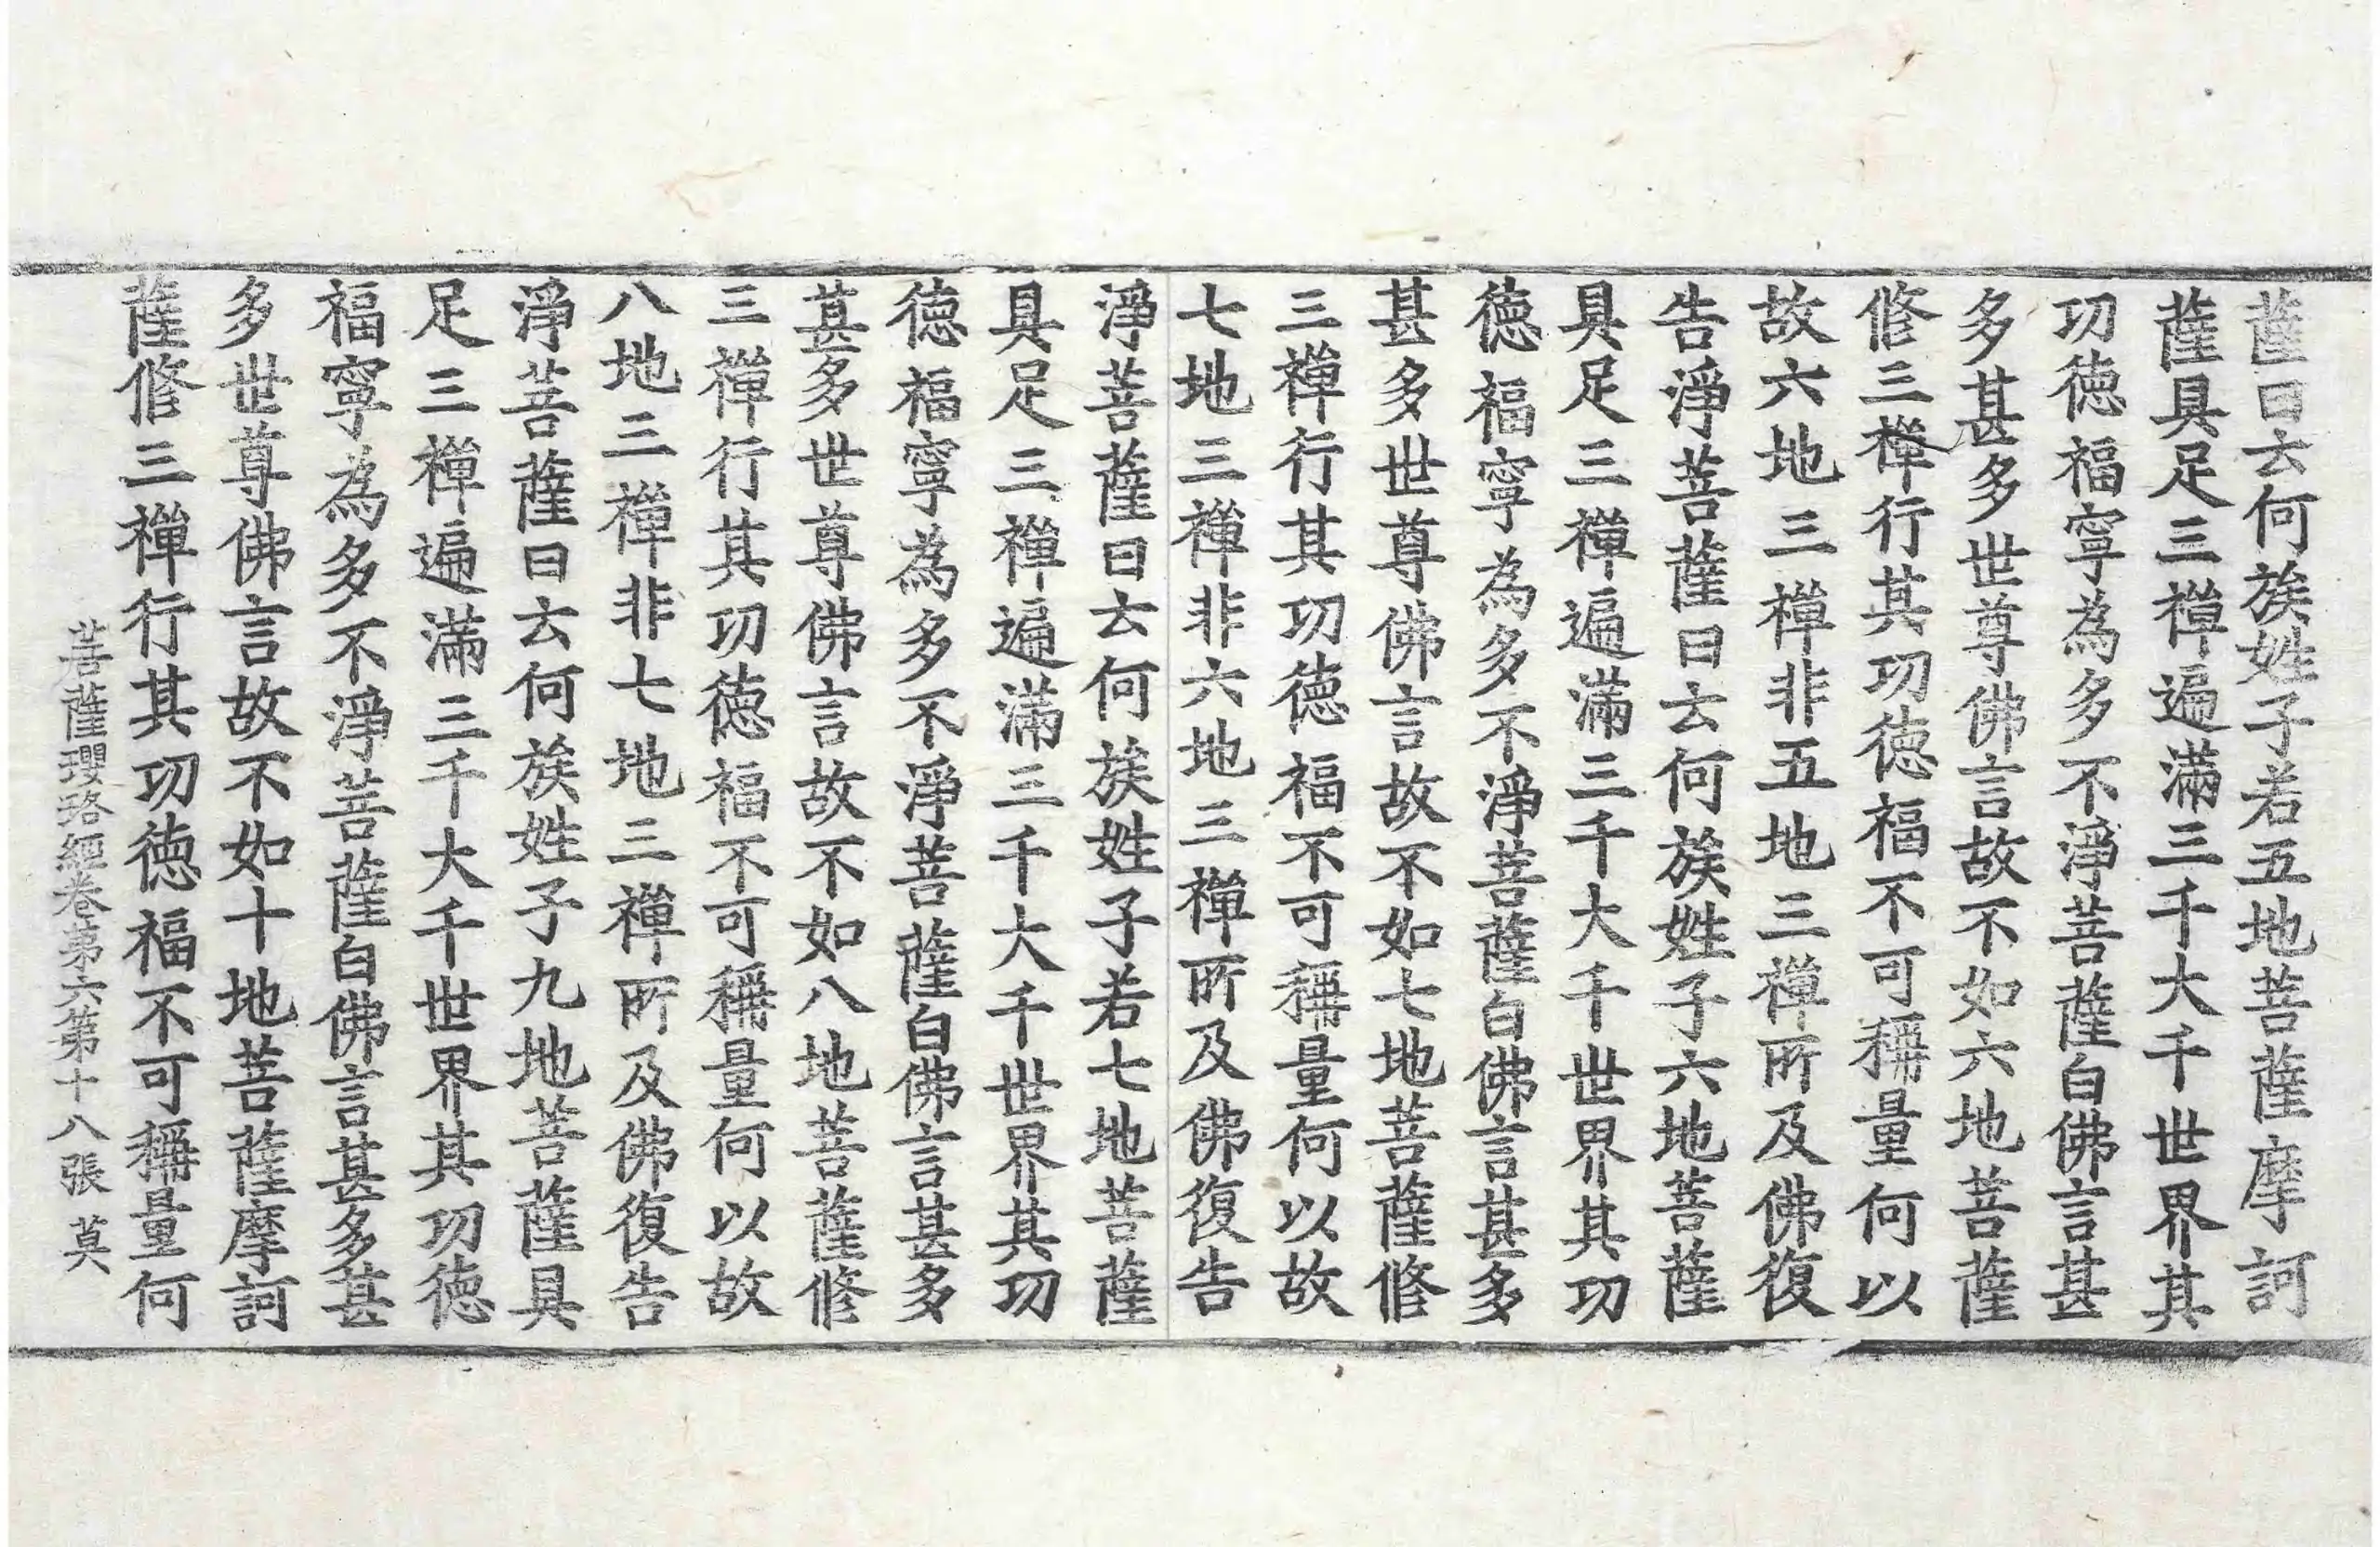 薩曰云何族姓子若五地菩薩摩訶
薩具足三禪遍滿三千大千世界其
功德福寧為多不淨菩薩白佛言甚
多甚多世尊佛言故不如六地菩薩
修三禪行其功德福不可稱量何以
故六地三禪非五地三禪所及佛復
告淨菩薩曰云何族姓子六地菩薩
具足三禪遍滿三千大千世界其功
德福寧為多不淨菩薩白佛言甚多
甚多世尊佛言故不如七地菩薩修
三禪行其功德福不可稱量何以故
七地三禪非六地三禪所及佛復告
淨菩薩曰云何族姓子若七地菩薩
具足三禪遍滿三千大千世界其功
德福寧為多不淨菩薩白佛言甚多
甚多世尊佛言故不如八地菩薩修
三禪行其功德福不可稱量何以故
八地三禪非七地三禪所及佛復告
淨菩薩曰云何族姓子九地菩薩具
足三禪遍滿三千大千世界其功德
福寧為多不淨菩薩白佛言甚多甚
多世尊佛言故不如十地菩薩摩訶
薩修三禪行其功德福不可稱量何
菩薩瓔珞經卷第六第十八張 莫